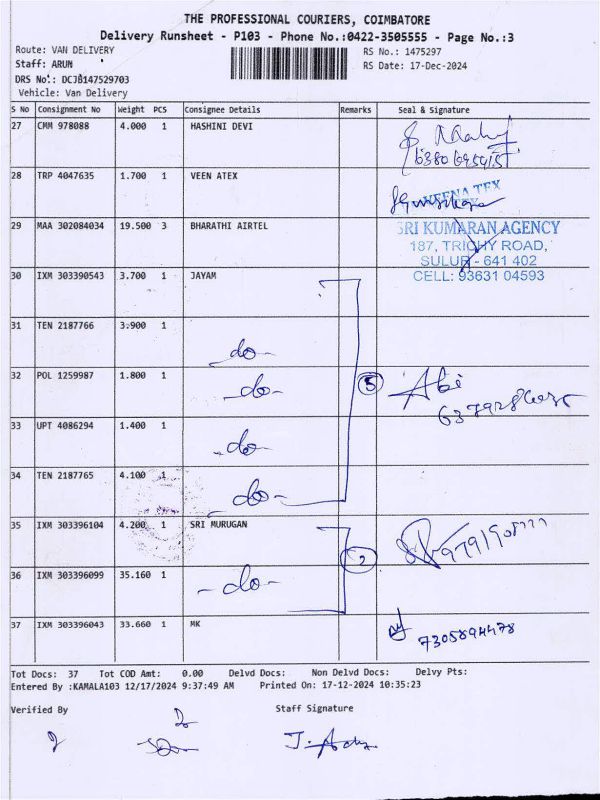 THE PROFESSIONAL COURIERS, COIMBATORE
Delivery Runsheet - P103 - Phone No.:0422-3505555 - Page No.:3
Route: VAN DELIVERY
RS No.: 1475297
Staff: ARUN
RS Date: 17-Dec-2024
DRS No.: DCJB147529703
Vehicle: Van Delivery
S No Consignment No Weight PCS Consignee Details Remarks Seal & Signature
27 CMM 978088 4.000 1 HASHINI DEVI
28 TRP 4047635 1.700 1 VEEN ATEX
VEENA TEX
29 MAA 302084034 19.500 3 BHARATHI AIRTEL
SRI KUMARAN AGENCY
187, TRICHY ROAD,
SULUR - 641 402
CELL: 93631 04593
30 IXM 303390543 3.700 1 JAYAM
31 TEN 2187766 3.900 1
-do-
32 POL 1259987 1.800 1 -do- 5 Abi
33 UPT 4086294 1.400 1
-do-
34 TEN 2187765 4.100 1
-do-
35 IXM 303396104 4.200 1 SRI MURUGAN
2
36 IXM 303396099 35.160 1 -do-
37 IXM 303396043 33.660 1 MK 7305894478
Tot Docs: 37 Tot COD Amt: 0.00 Delvd Docs: Non Delvd Docs: Delvy Pts:
Entered By :KAMALA103 12/17/2024 9:37:49 AM Printed On: 17-12-2024 10:35:23
Verified By Staff Signature